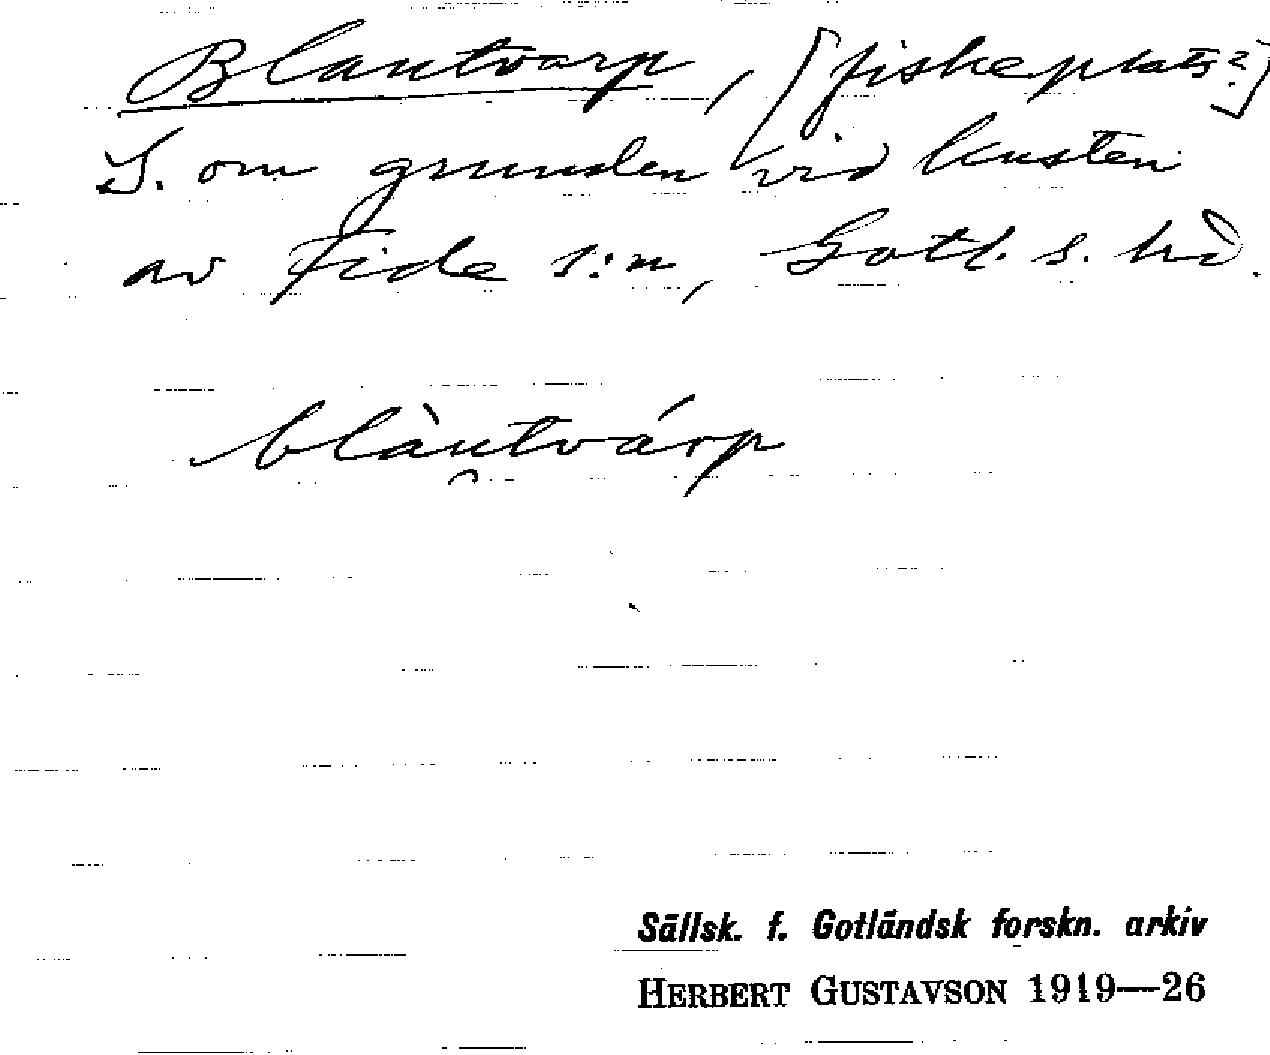 Blautvarp, [fiskeplats?]
S. om grunden vid kusten
av Fide s:n, Gotl. s. hd.
blàu̯tvárp
Sällsk. f. Gotländsk forskn. arkiv
HERBERT GUSTAVSON 1919—26